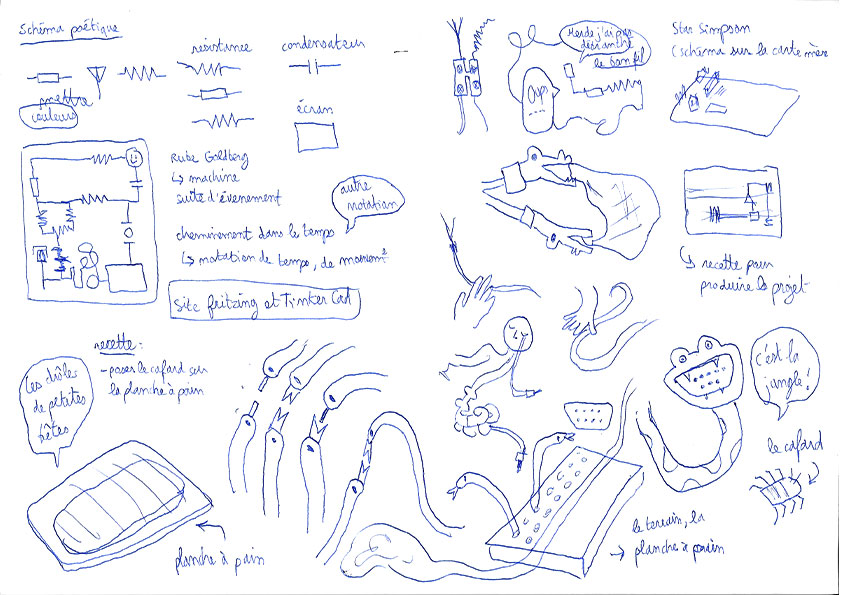 Schéma poétique
résistance
condensateur
écran
mettre
couleurs
Rube Goldberg
↳ machine
suite d'évenement
autre
notation
cheminement dans le temps
↳ notation de temps, de
Site fritzing et Tinker Cad
Merde j'ai pas
débranché
le bon fil
Star Simpson
(schéma sur la carte mère
↳ recette pour
produire le projet
recette :
- poser le cafard sur
la planche à pain
Les drôles
de petites
bêtes
planche à pain
c'est la
jungle !
le cafard
le terrain, la
→ planche à pain